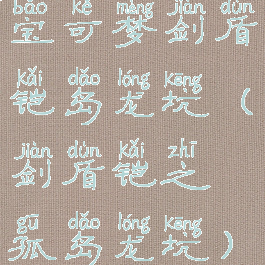 bǎo kě mèng jiàn dùn
宝可梦剑盾
kǎi dǎo lóng kēng
铠岛龙坑（
jiàn dùn kǎi zhī
剑盾铠之
gū dǎo lóng kēng
孤岛龙坑）